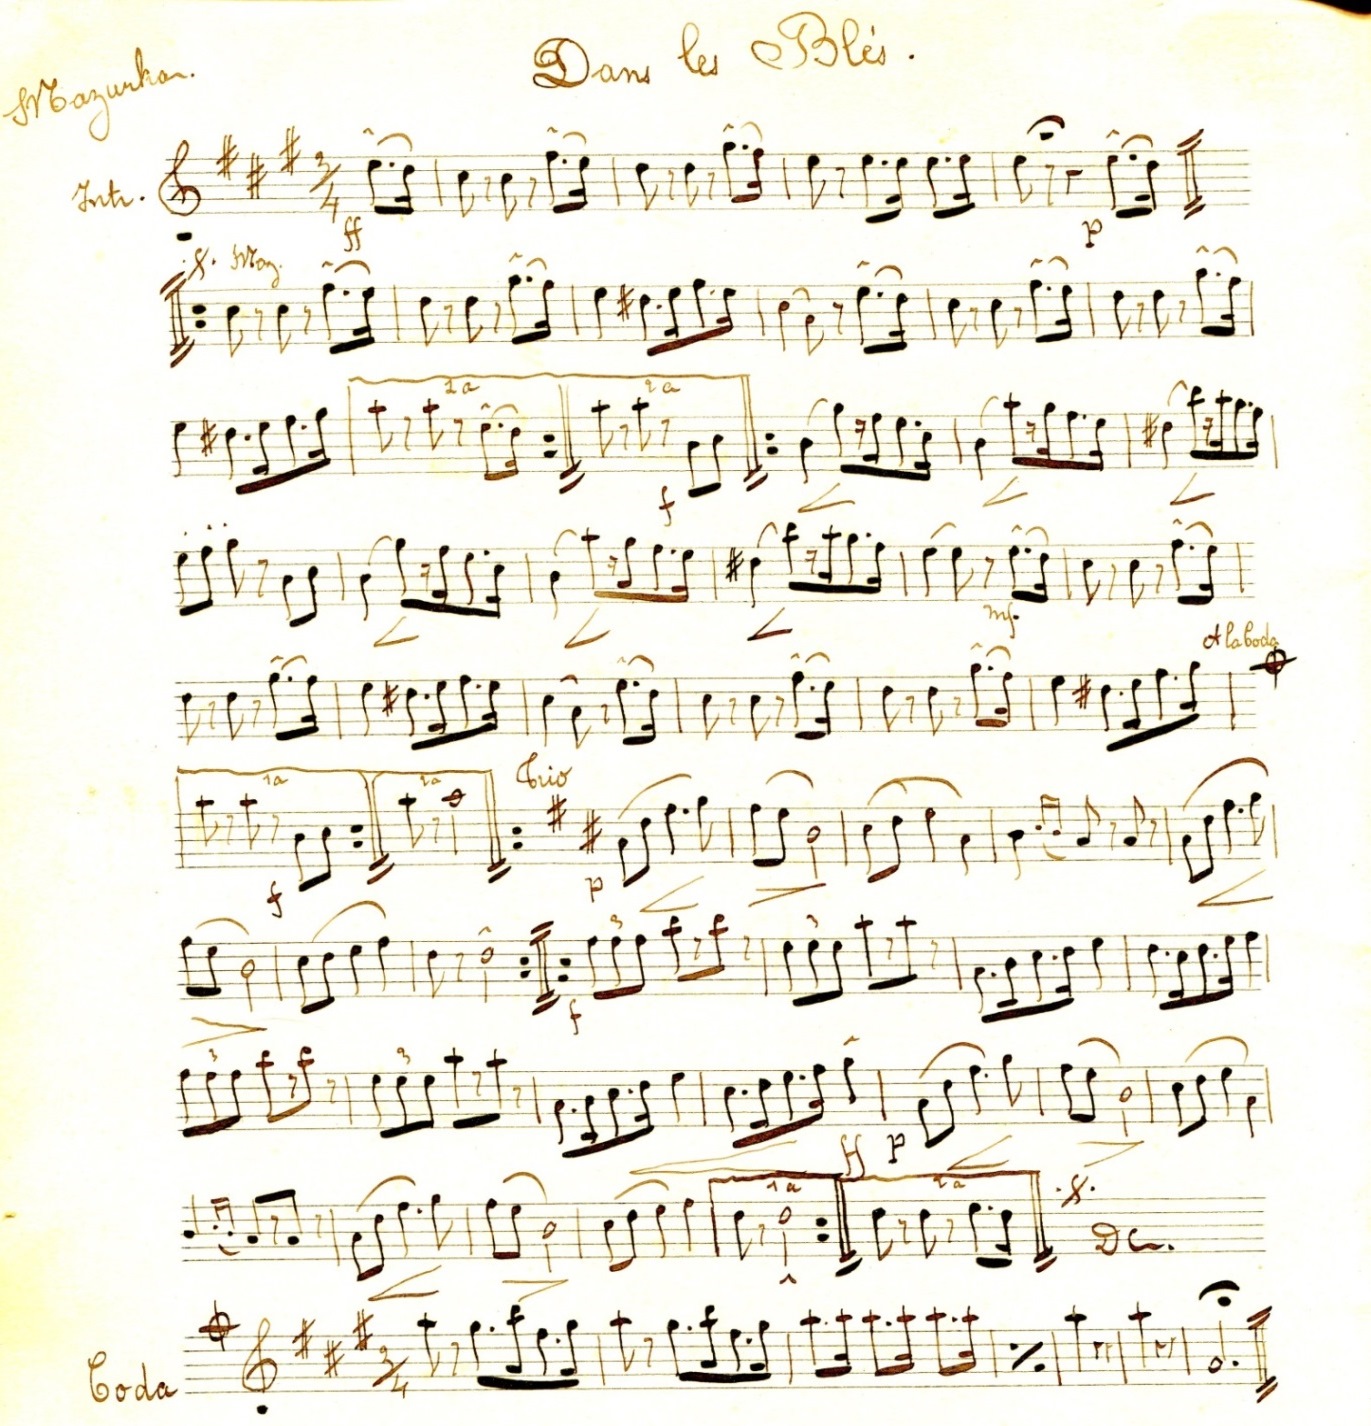 Dans les Blés.
Mazurka.
Intr.
3/4
ff
p
Maz.
1a 2a
f
mf.
A la Coda
1a 2a Trio
f p
3 3
f
3 3
ff p
1a 2a
DC.
Coda 3/4